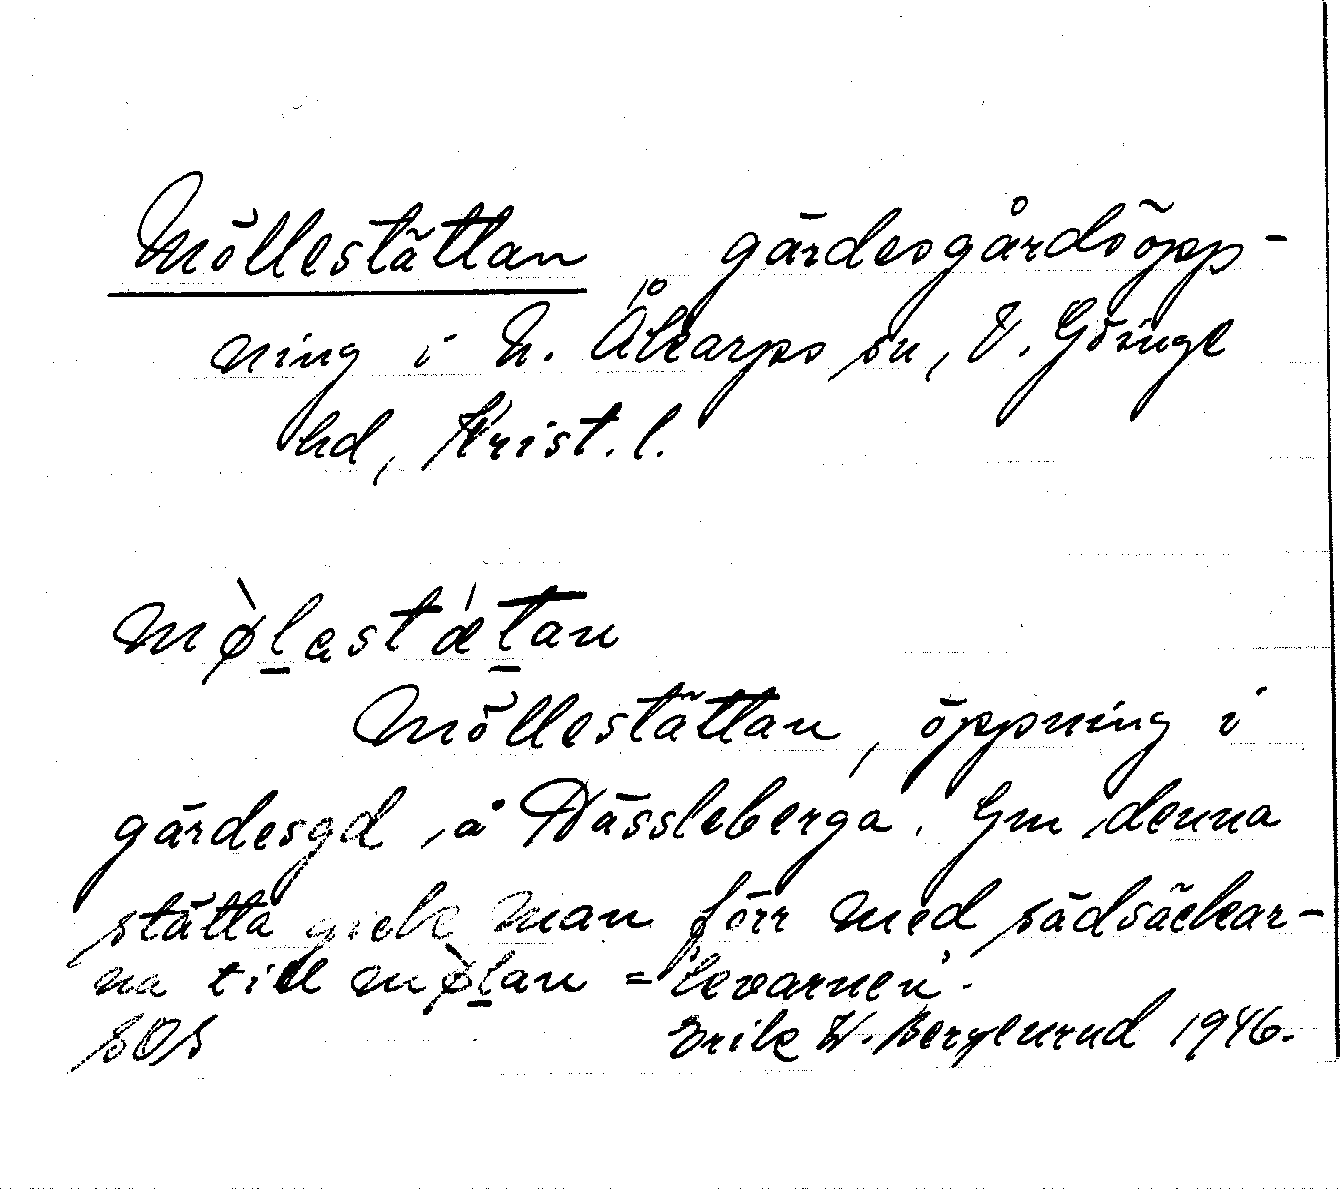 Möllestättan gärdesgårdsöpp-
ning i N. Åkarps sn, V. Göinge
hd, Krist. l.
mø̀lastǽtan
Möllestättan, öppning i
gärdesgd å Hässleberga. Gm denna
stätta gick man förr med sädsäckar-
na till mø̀lan = 'kvarnen'.
SOS Erik W. Bergenrud 1946.